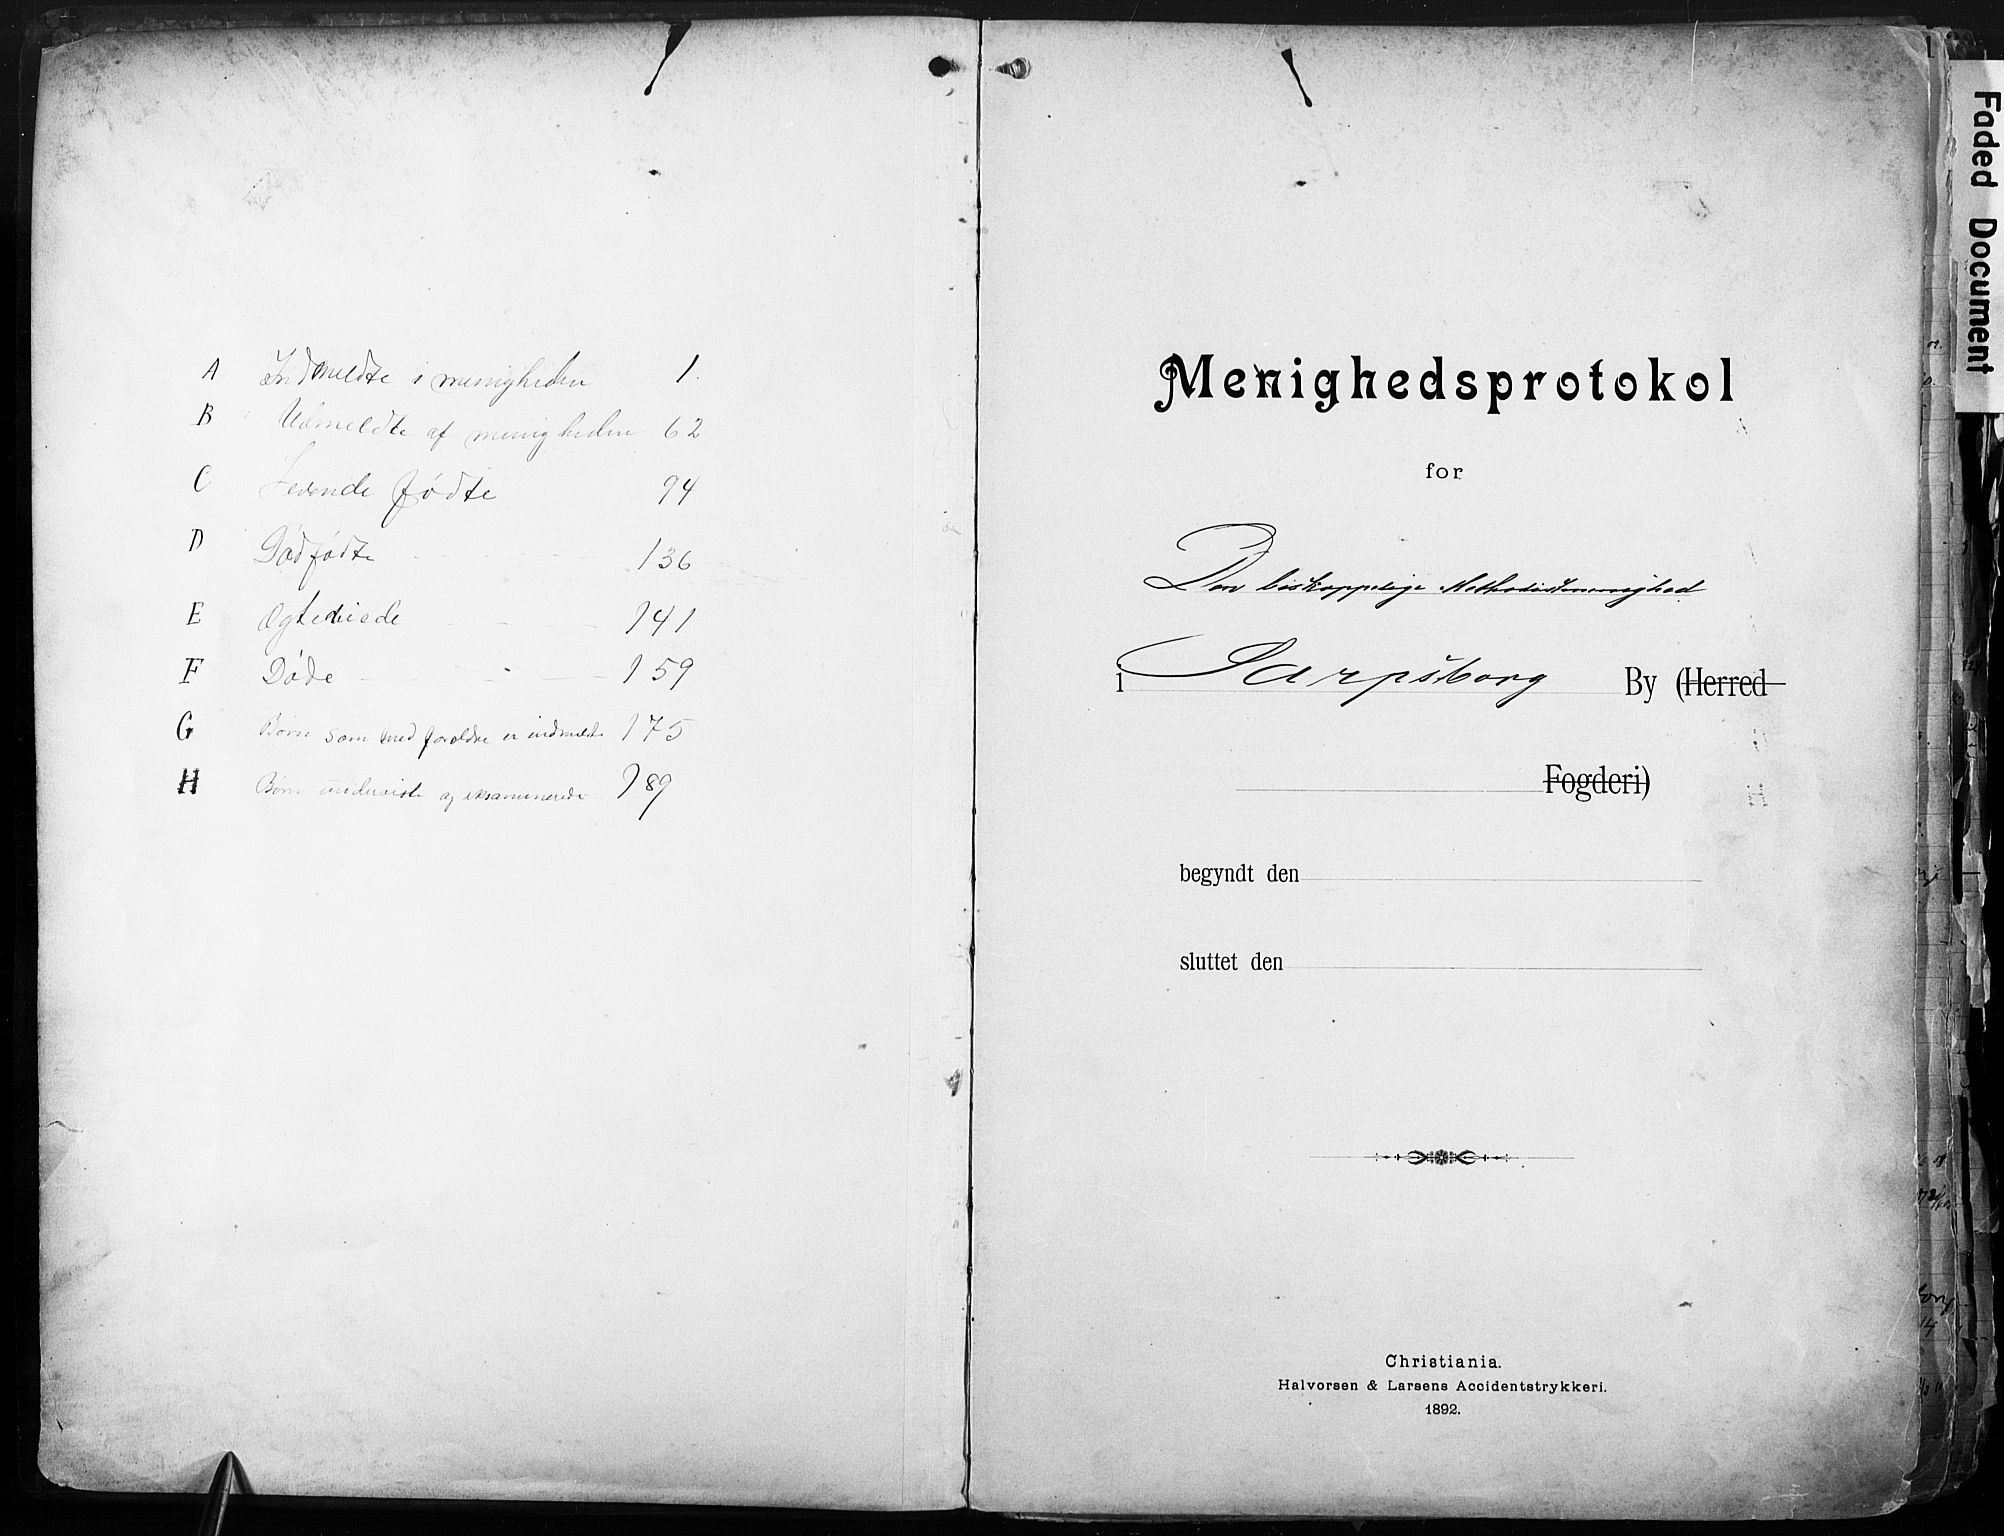 A Indmeldte i menigheden 1.
B Udmeldte af menigheden 62
C Levende fødte 94
D Dødfødte 136
E Ægteviede 141
F Døde 159
G Børn som med forældre er indmeldte 175
H Børn underviste og eksaminerede 189
Menighedsprotokol
for
Den biskoppelige Methodistmenighed
i Sarpsborg By (Herred
Fogderi)
begyndt den
sluttet den
Christiania.
Halvorsen & Larsens Accidentstrykkeri.
1892.
Faded Document